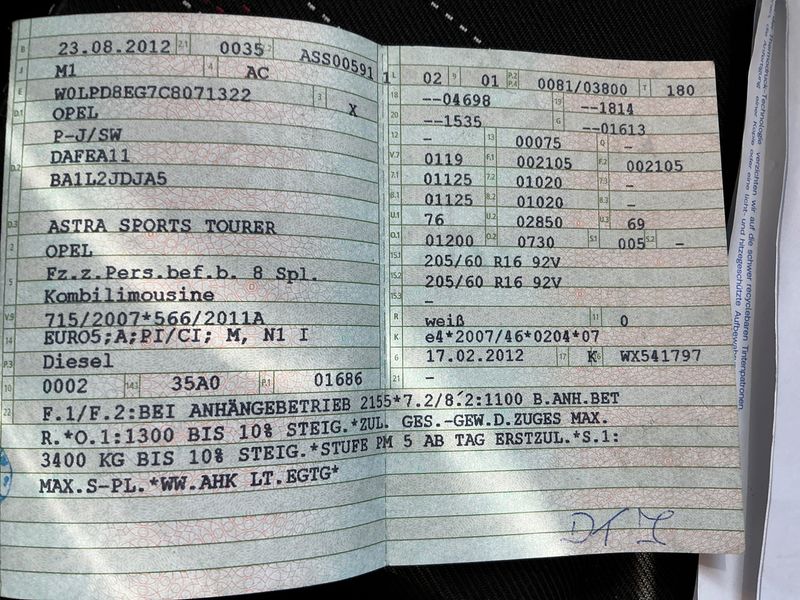 B 23.08.2012 2.1 0035 2.2 ASS00591 1
J M1 4 AC
E W0LPD8EG7C8071322 3 X
D.1 OPEL
P-J/SW
D.2 DAFEA11
BA1L2JDJA5
D.3 ASTRA SPORTS TOURER
2 OPEL
5 Fz.z.Pers.bef.b. 8 Spl.
Kombilimousine
V.9 715/2007*566/2011A
14 EURO5;A;PI/CI; M, N1 I
P.3 Diesel
10 0002 14.1 35A0 P.1 01686
L 02 9 01 P.2 P.4 0081/03800 T 180
18 --04698 19 --1814
20 --1535 G --01613
12 - 13 00075 Q -
V.7 0119 F.1 002105 F.2 002105
7.1 01125 7.2 01020 7.3 -
8.1 01125 8.2 01020 8.3 -
U.1 76 U.2 02850 U.3 69
O.1 01200 O.2 0730 S.1 005 S.2 -
15.1 205/60 R16 92V
15.2 205/60 R16 92V
15.3 -
R weiß 11 0
K e4*2007/46*0204*07
6 17.02.2012 17 K 16 WX541797
21 -
22 F.1/F.2:BEI ANHÄNGEBETRIEB 2155*7.2/8.2:1100 B.ANH.BET
R.*O.1:1300 BIS 10% STEIG.*ZUL. GES.-GEW.D.ZUGES MAX.
3400 KG BIS 10% STEIG.*STUFE PM 5 AB TAG ERSTZUL.*S.1:
MAX.S-PL.*WW.AHK LT.EGTG*